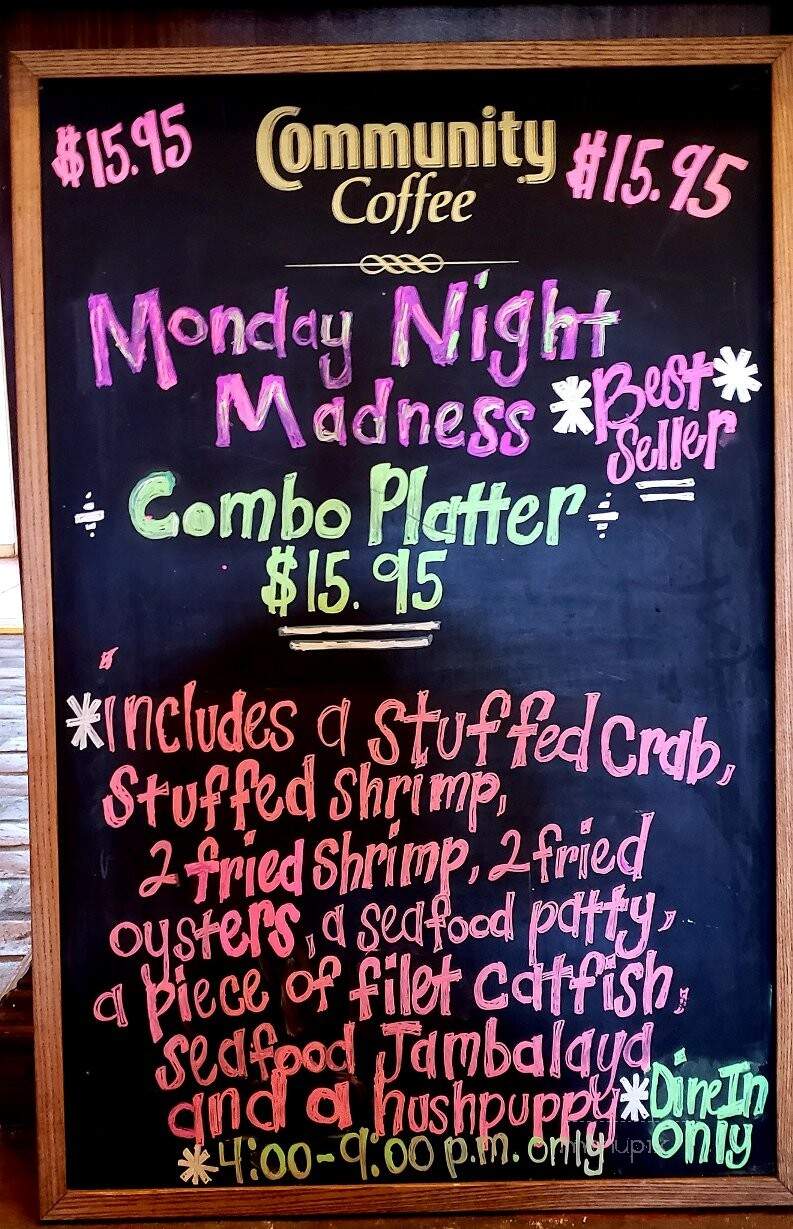 $15.95
Community
Coffee
$15.95
Monday Night
Madness
*Best
Seller*
Combo Platter
$15.95
*includes a stuffed crab,
stuffed shrimp,
2 fried shrimp, 2 fried
oysters, a seafood patty,
a piece of filet catfish,
seafood Jambalaya
and a hushpuppy
*Dine In
only
*4:00-9:00 p.m. only